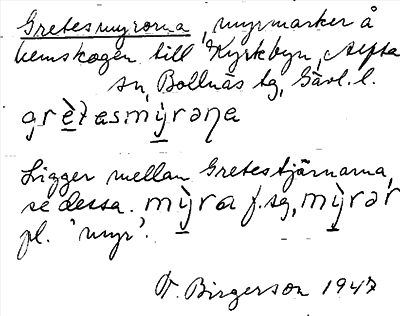 Gretesmyrorna, myrmarker å
hemskogen till Kyrkbyn, Alfta
sn, Bollnäs tg, Gävl. l.
grètasmỳrəɳa
Ligger mellan Gretestjärnarna,
se dessa. mỳra f. sg, mỳrər
pl. 'myr'.
V. Birgerson 1947